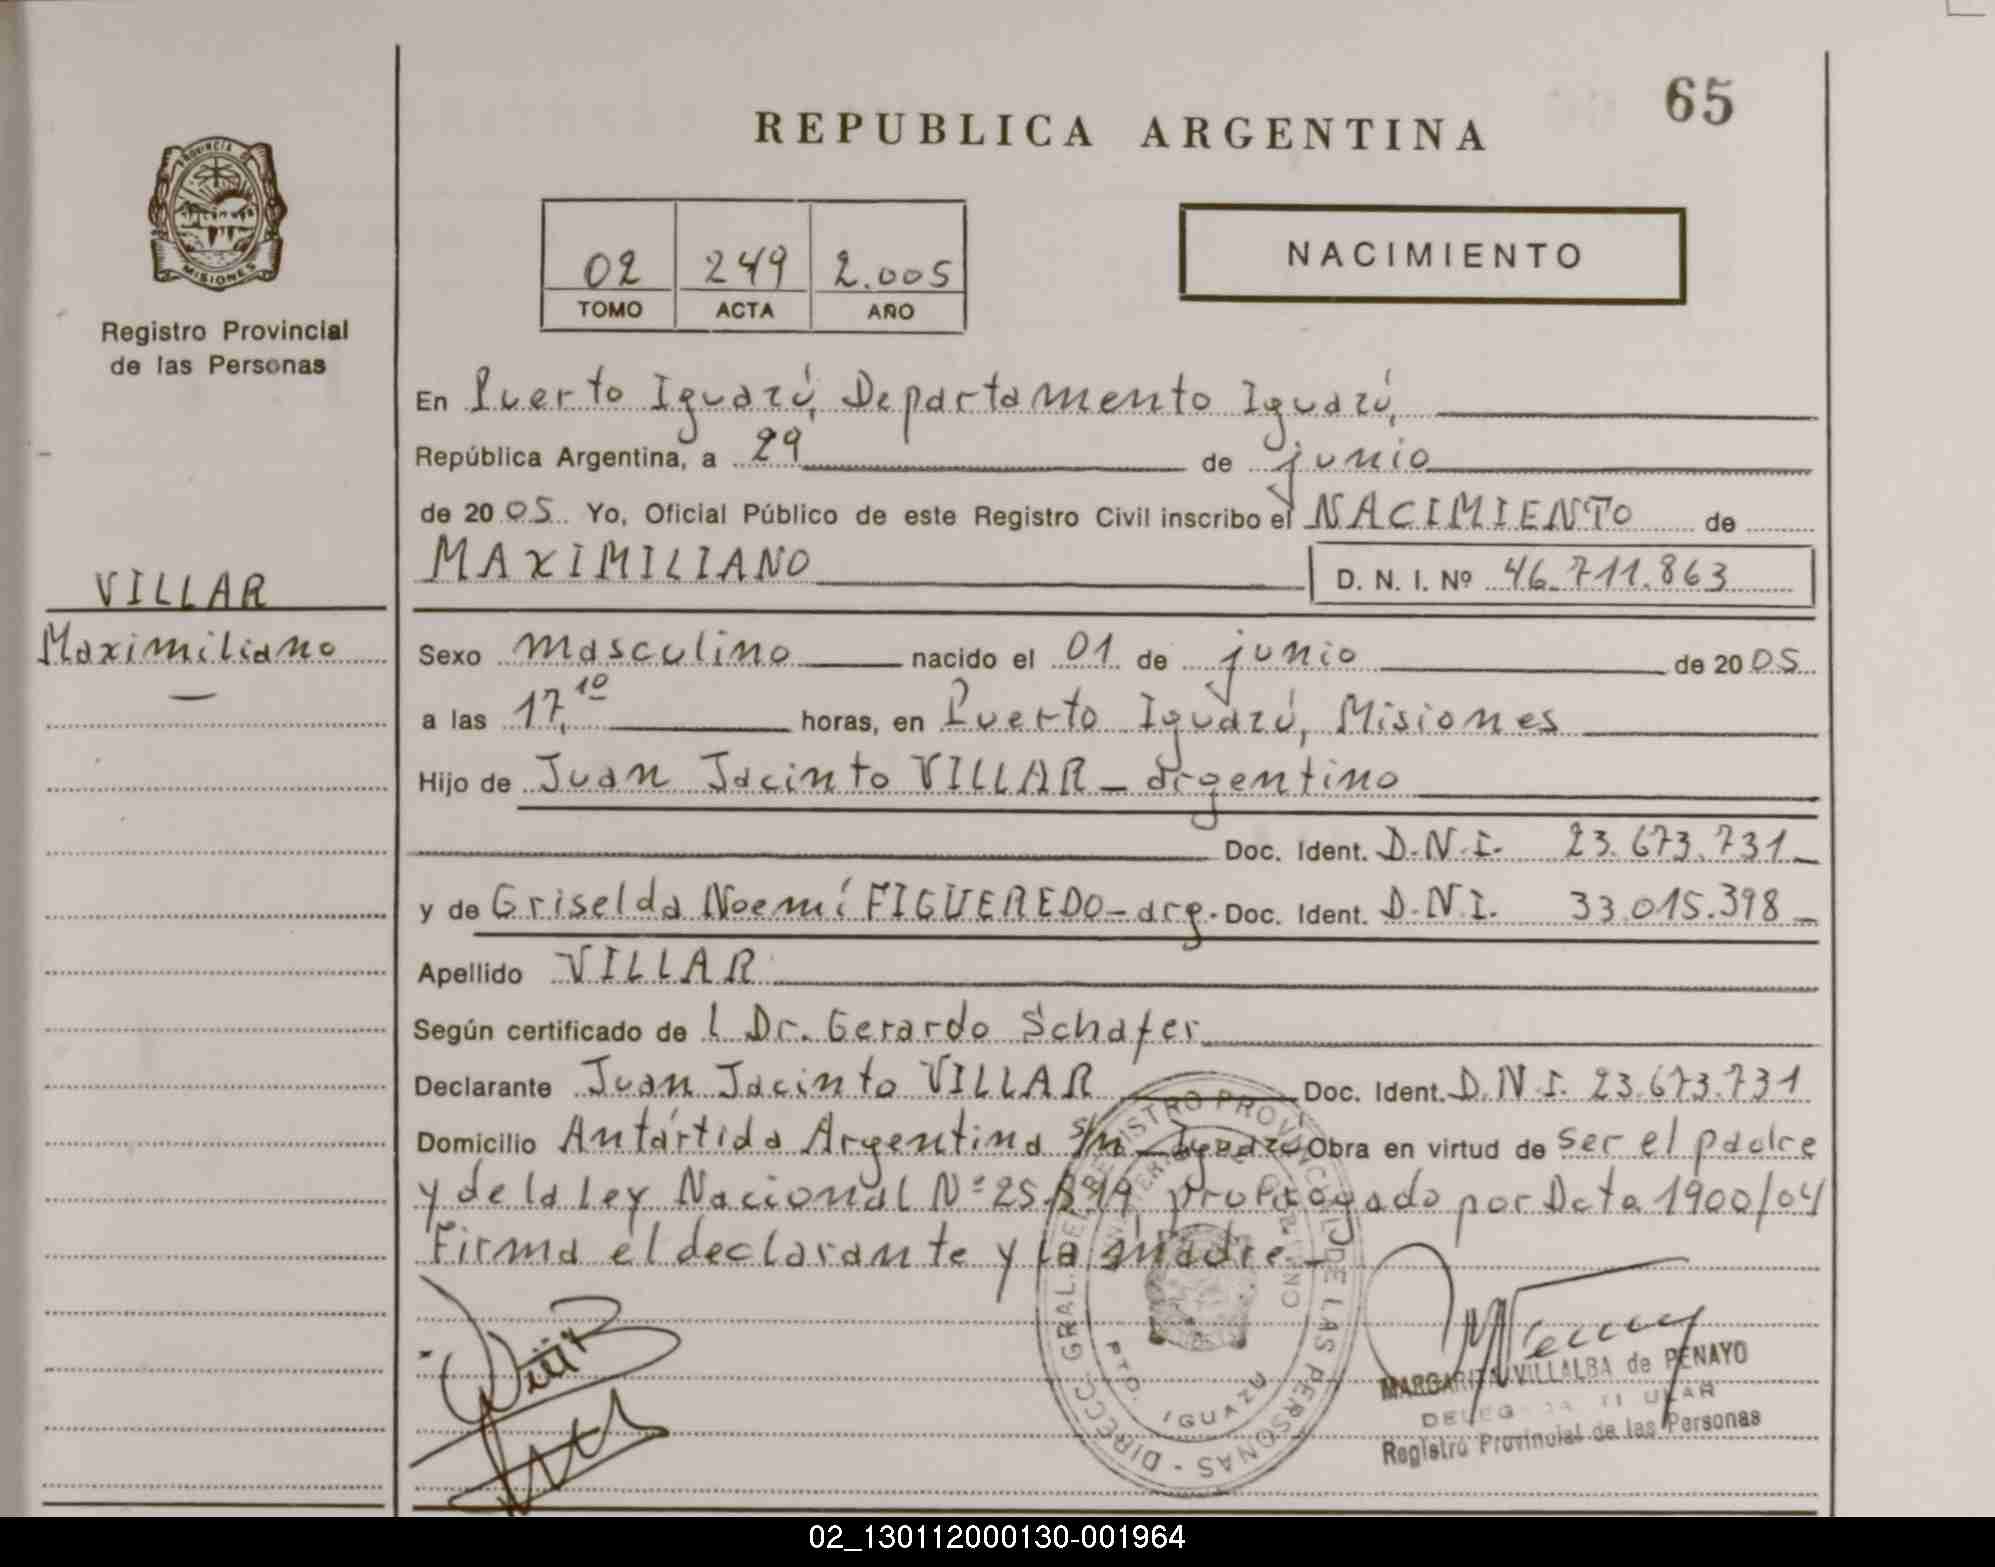 65
REPUBLICA ARGENTINA
PROVINCIA DE
MISIONES
Registro Provincial
de las Personas
02 249 2.005
TOMO ACTA AÑO
NACIMIENTO
En Puerto Iguazú, Departamento Iguazú,
República Argentina, a 29 de junio
de 20 05 Yo, Oficial Público de este Registro Civil inscribo el NACIMIENTO de
MAXIMILIANO D. N. I. Nº 46.711.863
VILLAR
Maximiliano
Sexo masculino nacido el 01 de junio de 20 05
a las 17,10 horas, en Puerto Iguazú, Misiones
Hijo de Juan Jacinto VILLAR - argentino
Doc. Ident. D.N.I. 23.673.731
y de Griselda Noemí FIGUEREDO - arg. Doc. Ident. D.N.I. 33.015.398
Apellido VILLAR
Según certificado de l Dr. Gerardo Schafer
Declarante Juan Jacinto VILLAR Doc. Ident. D.N.I. 23.673.731
Domicilio Antártida Argentina s/n - Iguazú Obra en virtud de ser el padre
y de la Ley Nacional Nº 25.819 prorrogado por Dcto 1900/04
Firma el declarante y la madre
DIRECC. GRAL. DEL REGISTRO PROVINCIAL DE LAS PERSONAS
MINISTERIO DE GOBIERNO
PTO. IGUAZU
MARGARITA VILLALBA de PENAYO
DELEGADA TITULAR
Registro Provincial de las Personas
02_130112000130-001964